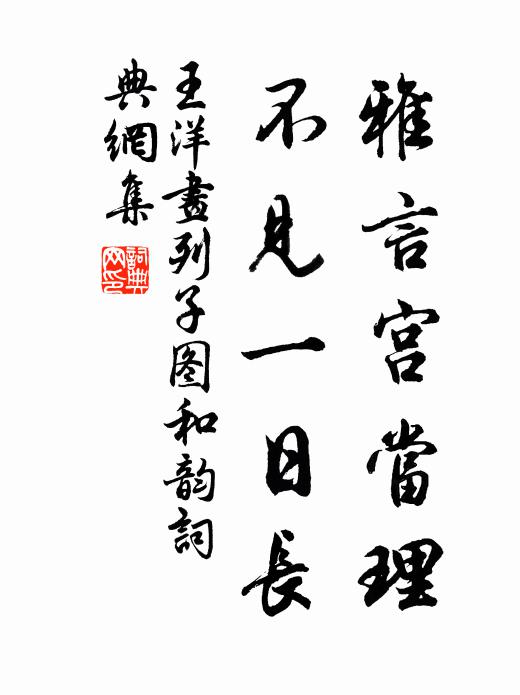 雅言宫當理
不見一日長
王洋畫列子图和韵詞
典網集
詞典
网印